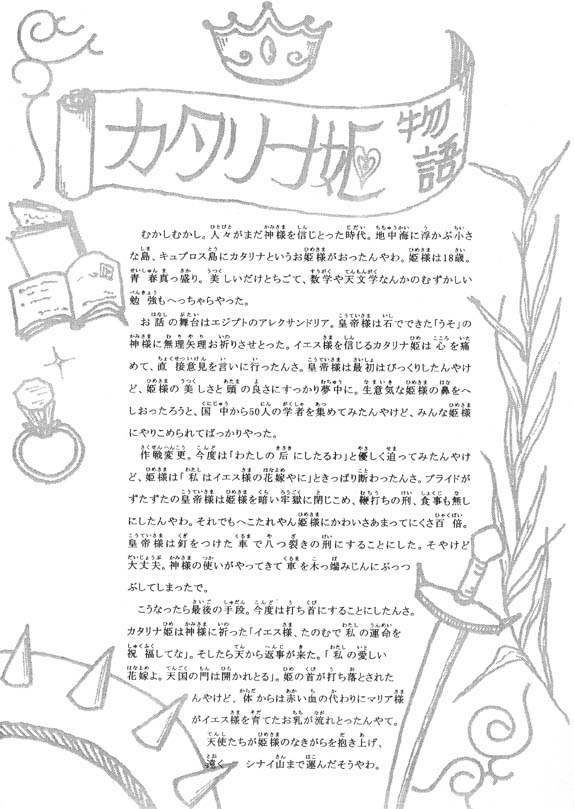 カタリナ姫物語
むかしむかし。人々がまだ神様を信じとった時代。地中海に浮かぶ小さ
な島、キュプロス島にカタリナというお姫様がおったんやわ。姫様は18歳。
青春真っ盛り。美しいだけとちごて、数学や天文学なんかのむずかしい
勉強もへっちゃらやった。
お話の舞台はエジプトのアレクサンドリア。皇帝様は石でできた「うそ」の
神様に無理矢理お祈りさせとった。イエス様を信じるカタリナ姫は心を痛
めて、直接意見を言いに行ったんさ。皇帝様は最初はびっくりしたんやけ
ど、姫様の美しさと頭の良さにすっかり夢中に。生意気な姫様の鼻をへ
しおったろうと、国中から50人の学者を集めてみたんやけど、みんな姫様
にやりこめられてばっかりやった。
作戦変更。今度は「わたしの后にしたるわ」と優しく迫ってみたんやけ
ど、姫様は「私はイエス様の花嫁やに」ときっぱり断わったんさ。プライドが
ずたずたの皇帝様は姫様を暗い牢獄に閉じこめ、鞭打ちの刑、食事も無し
にしたんやわ。それでもへこたれやん姫様にかわいさあまってにくさ百倍。
皇帝様は釘をつけた車で八つ裂きの刑にすることにした。そやけど
大丈夫。神様の使いがやってきて車を木っ端みじんにぶっつ
ぶしてしまったで。
こうなったら最後の手段。今度は打ち首にすることにしたんさ。
カタリナ姫は神様に祈った「イエス様、たのむで私の運命を
祝福してな」。そしたら天から返事が来た。「私の愛しい
花嫁よ。天国の門は開かれとる」。姫の首が打ち落とされた
んやけど、体からは赤い血の代わりにマリア様
がイエス様を育てたお乳が流れとったんやて。
天使たちが姫様のなきがらを抱き上げ、
遠く シナイ山まで運んだそうやわ。